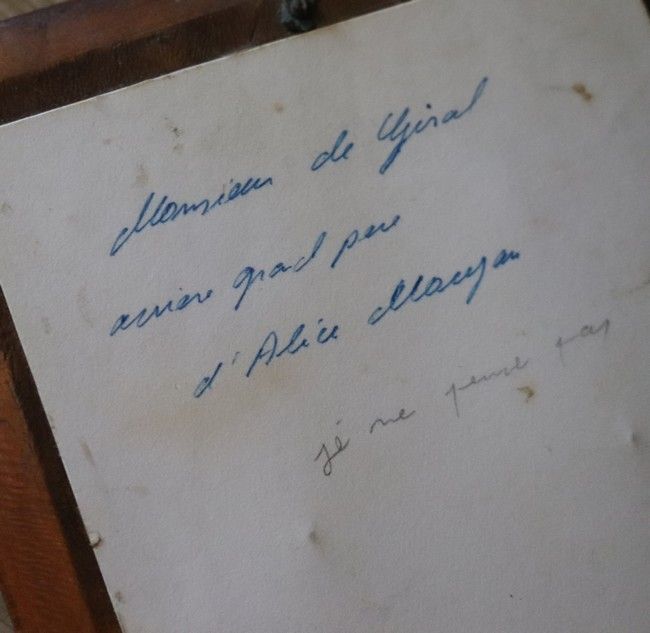 Monsieur de Giral
arrière grand père
d'Alice
je ne pense pas